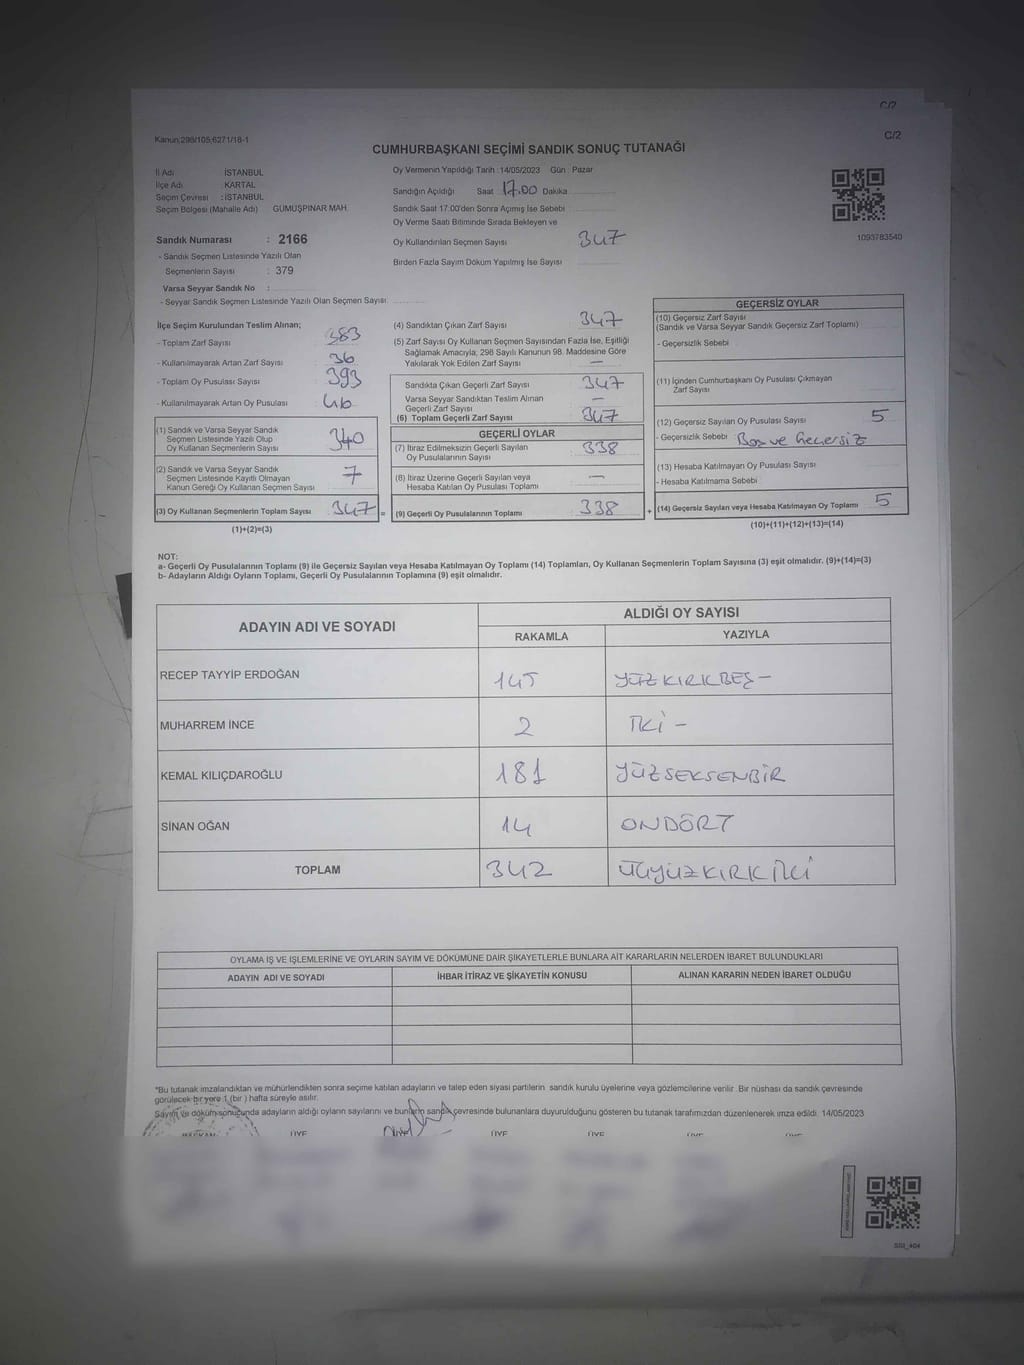 C/2
C/2
Kanun:298/105,6271/18-1
CUMHURBAŞKANI SEÇİMİ SANDIK SONUÇ TUTANAĞI
İl Adı : İSTANBUL
İlçe Adı : KARTAL
Seçim Çevresi : İSTANBUL
Seçim Bölgesi (Mahalle Adı) GÜMÜŞPINAR MAH.
Sandık Numarası : 2166
- Sandık Seçmen Listesinde Yazılı Olan
Seçmenlerin Sayısı : 379
Varsa Seyyar Sandık No :
- Seyyar Sandık Seçmen Listesinde Yazılı Olan Seçmen Sayısı:
Oy Vermenin Yapıldığı Tarih : 14/05/2023 Gün : Pazar
Sandığın Açıldığı Saat 17.00 Dakika
Sandık Saat 17:00'den Sonra Açımış İse Sebebi
Oy Verme Saati Bitiminde Sırada Bekleyen ve
Oy Kullandırılan Seçmen Sayısı 347
Birden Fazla Sayım Döküm Yapılmış İse Sayısı
1093783540
İlçe Seçim Kurulundan Teslim Alınan;
- Toplam Zarf Sayısı 383
- Kullanılmayarak Artan Zarf Sayısı 36
- Toplam Oy Pusulası Sayısı 393
- Kullanılmayarak Artan Oy Pusulası 46
(1) Sandık ve Varsa Seyyar Sandık
Seçmen Listesinde Yazılı Olup
Oy Kullanan Seçmenlerin Sayısı 340
(2) Sandık ve Varsa Seyyar Sandık
Seçmen Listesinde Kayıtlı Olmayan
Kanun Gereği Oy Kullanan Seçmen Sayısı 7
(3) Oy Kullanan Seçmenlerin Toplam Sayısı 347 =
(1)+(2)=(3)
(4) Sandıktan Çıkan Zarf Sayısı 347
(5) Zarf Sayısı Oy Kullanan Seçmen Sayısından Fazla İse, Eşitliği
Sağlamak Amacıyla; 298 Sayılı Kanunun 98. Maddesine Göre
Yakılarak Yok Edilen Zarf Sayısı —
Sandıkta Çıkan Geçerli Zarf Sayısı 347
Varsa Seyyar Sandıktan Teslim Alınan
Geçerli Zarf Sayısı —
(6) Toplam Geçerli Zarf Sayısı 347
GEÇERLİ OYLAR
(7) İtiraz Edilmeksizin Geçerli Sayılan
Oy Pusulalarının Sayısı 338
(8) İtiraz Üzerine Geçerli Sayılan veya
Hesaba Katılan Oy Pusulası Toplamı —
(9) Geçerli Oy Pusulalarının Toplamı 338 +
GEÇERSİZ OYLAR
(10) Geçersiz Zarf Sayısı
(Sandık ve Varsa Seyyar Sandık Geçersiz Zarf Toplamı)
- Geçersizlik Sebebi
(11) İçinden Cumhurbaşkanı Oy Pusulası Çıkmayan
Zarf Sayısı
(12) Geçersiz Sayılan Oy Pusulası Sayısı 5
- Geçersizlik Sebebi Boş ve Geçersiz
(13) Hesaba Katılmayan Oy Pusulası Sayısı
- Hesaba Katılmama Sebebi
(14) Geçersiz Sayılan veya Hesaba Katılmayan Oy Toplamı 5
(10)+(11)+(12)+(13)=(14)
NOT:
a- Geçerli Oy Pusulalarının Toplamı (9) ile Geçersiz Sayılan veya Hesaba Katılmayan Oy Toplamı (14) Toplamları, Oy Kullanan Seçmenlerin Toplam Sayısına (3) eşit olmalıdır. (9)+(14)=(3)
b- Adayların Aldığı Oyların Toplamı, Geçerli Oy Pusulalarının Toplamına (9) eşit olmalıdır.
ADAYIN ADI VE SOYADI ALDIĞI OY SAYISI
RAKAMLA YAZIYLA
RECEP TAYYİP ERDOĞAN 145 YÜZKIRKBEŞ -
MUHARREM İNCE 2 İKİ -
KEMAL KILIÇDAROĞLU 181 YÜZSEKSENBİR
SİNAN OĞAN 14 ONDÖRT
TOPLAM 342 ÜÇYÜZKIRKİKİ
OYLAMA İŞ VE İŞLEMLERİNE VE OYLARIN SAYIM VE DÖKÜMÜNE DAİR ŞİKAYETLERLE BUNLARA AİT KARARLARIN NELERDEN İBARET BULUNDUKLARI
ADAYIN ADI VE SOYADI İHBAR İTİRAZ VE ŞİKAYETİN KONUSU ALINAN KARARIN NEDEN İBARET OLDUĞU
*Bu tutanak imzalandıktan ve mühürlendikten sonra seçime katılan adayların ve talep eden siyasi partilerin sandık kurulu üyelerine veya gözlemcilerine verilir. Bir nüshası da sandık çevresinde
görülecek bir yere 1 (bir ) hafta süreyle asılır.
Sayım ve döküm sonucunda adayların aldığı oyların sayılarını ve bunların sandık çevresinde bulunanlara duyurulduğunu gösteren bu tutanak tarafımızdan düzenlenerek imza edildi. 14/05/2023
BAŞKAN ÜYE ÜYE ÜYE ÜYE
SSI_404